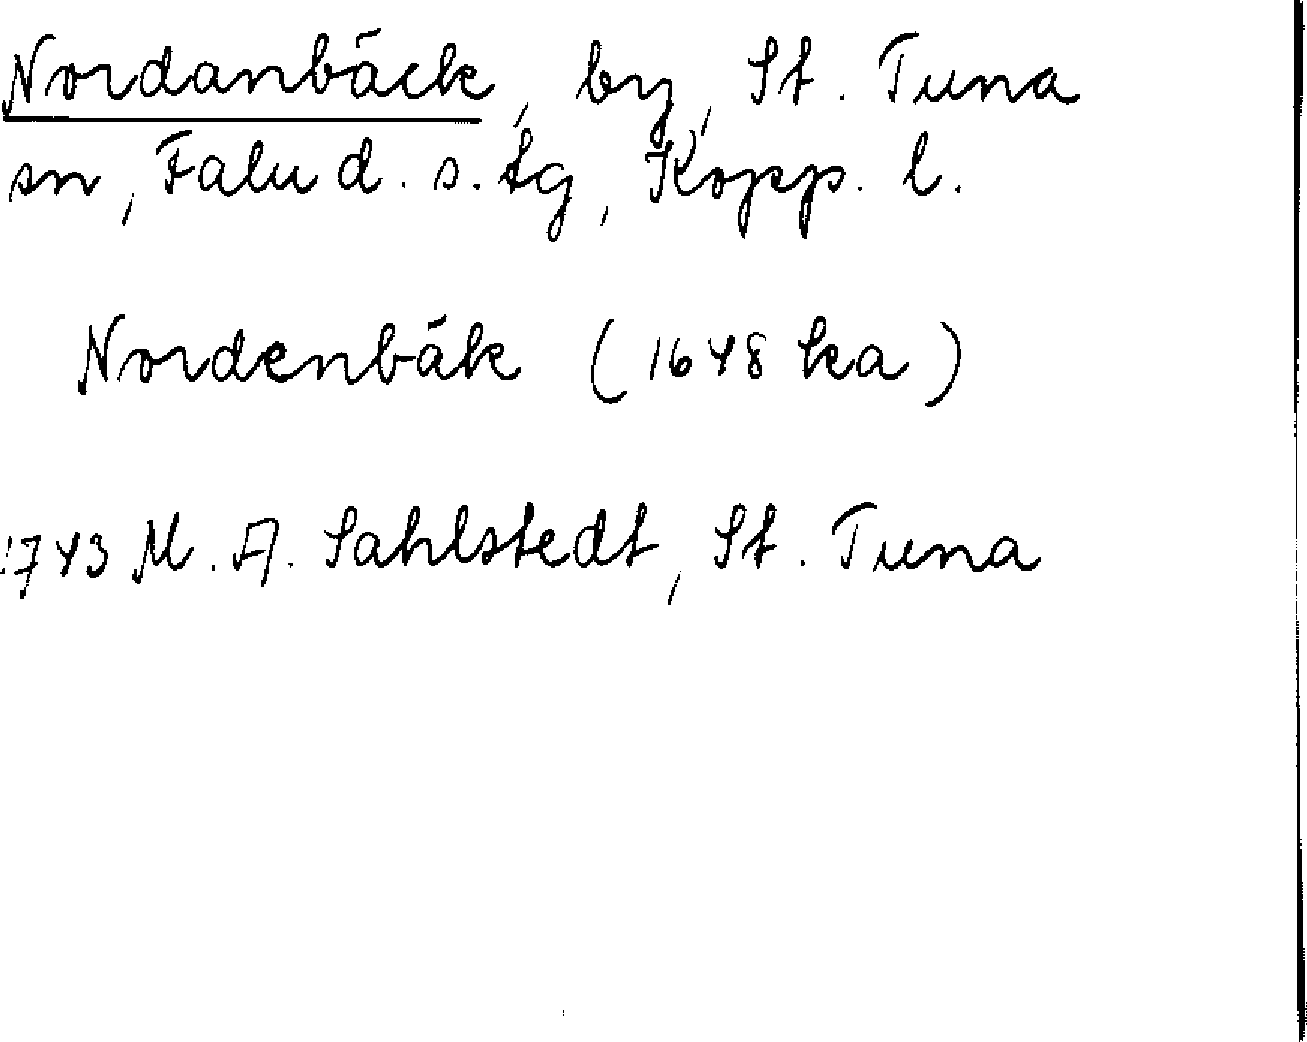 Nordanbäck, by, St. Tuna
sn, Falu d. s. tg, Kopp. l.
Nordenbäk (1648 ka)
1743 M. A. Sahlstedt, St. Tuna